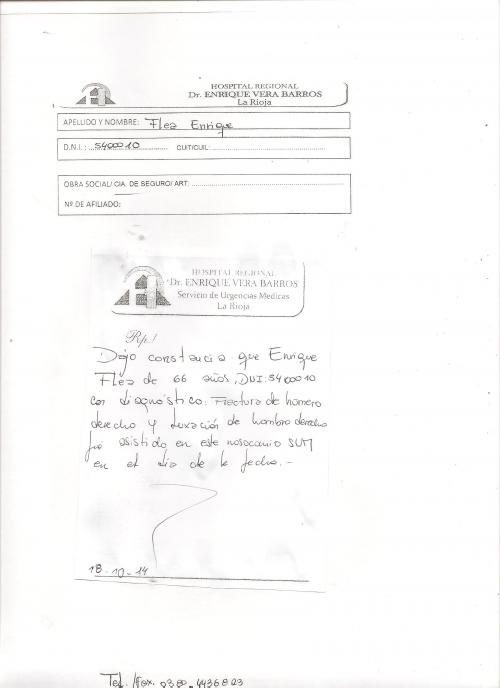 HOSPITAL REGIONAL
Dr. ENRIQUE VERA BARROS
La Rioja
APELLIDO Y NOMBRE: Flea Enrique
D.N.I.: 5400010 CUIT/CUIL:
OBRA SOCIAL/ CIA. DE SEGURO/ ART:
Nº DE AFILIADO:
HOSPITAL REGIONAL
Dr. ENRIQUE VERA BARROS
Servicio de Urgencias Medicas
La Rioja
Rp./
Dejo constancia que Enrique
Flea de 66 años, DNI: 5400010
con diagnóstico: Fractura de húmero
derecho y luxación de hombro derecho
fué asistido en este nosocomio SUM
en el día de la fecha.-
18-10-14
Tel./Fax. 0380-4436823